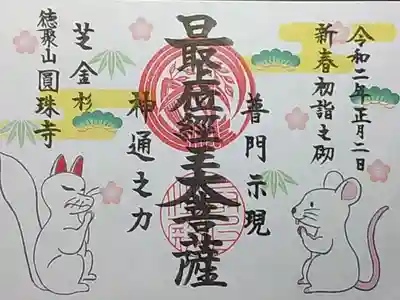 令和二年正月二日
新春初詣之砌
普門示現
最上位經王大菩薩
神通之力
芝金杉
徳聚山 圓珠寺